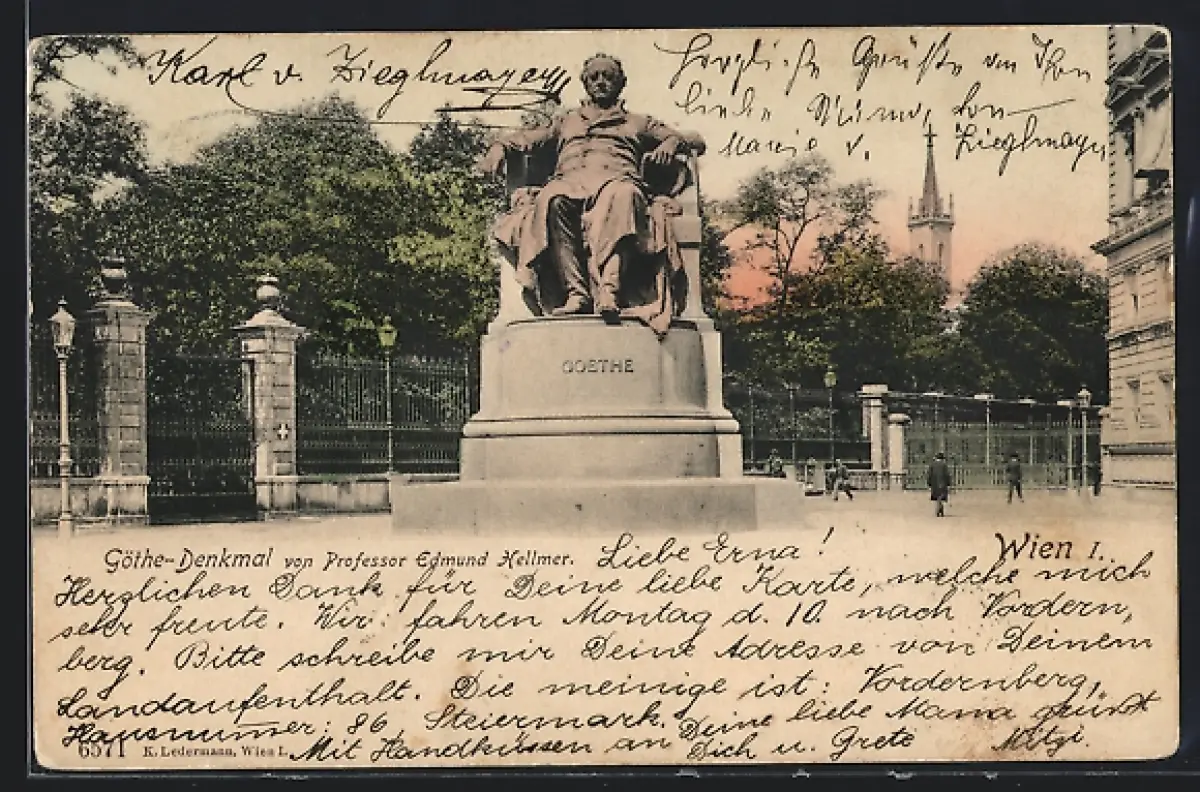 Karl v. Zieglmayer
Herzliche Grüße von Ihrer
Marie v. Zieglmayer
GOETHE
Göthe-Denkmal von Professor Edmund Hellmer.
Wien I.
Liebe Erna!
Herzlichen Dank für Deine liebe Karte, welche mich
sehr freute. Wir fahren Montag d. 10. nach Vordern,
berg. Bitte schreibe mir Deine Adresse von Deinem
Landaufenthalt. Die meinige ist: Vordernberg,
Hausnummer: 86, Steiermark.
Mit Handküssen an Deine liebe Mama grüßt
Dich u. Grete Mitzi.
6571 K. Ledermann, Wien I.